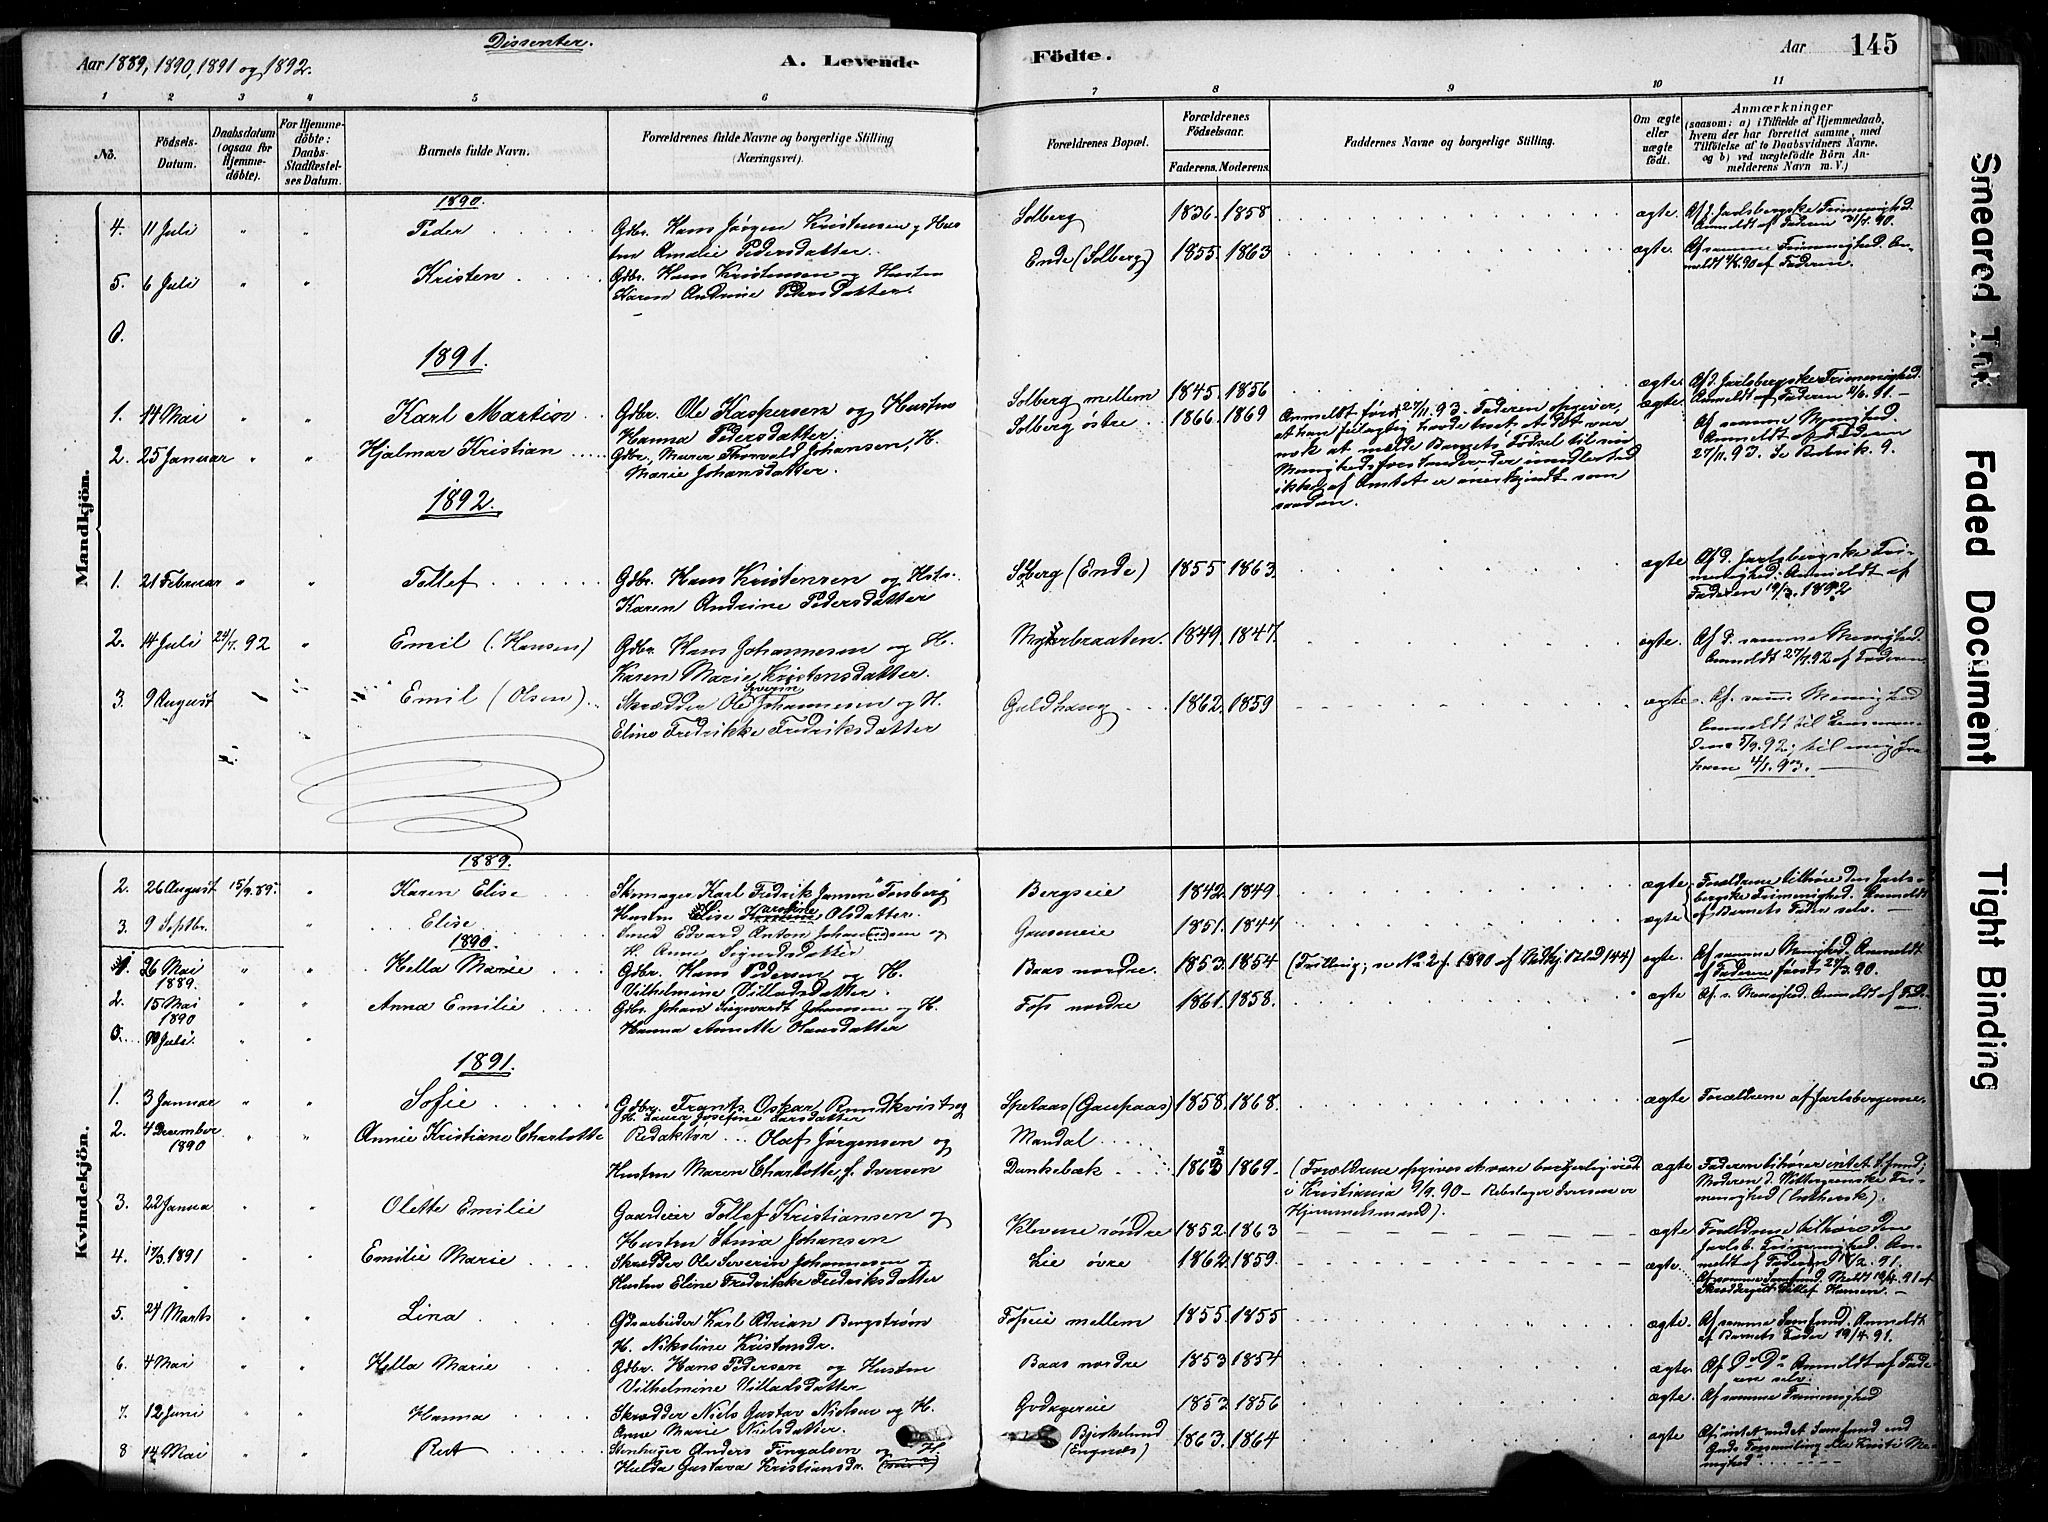 Dissenter.
Aar 1889, 1890, 1891 og 1892.
A. Levende Födte.
Aar 145
1 2 3 4 5 6 7 8 9 10 11
No.
Födsels-Datum.
Daabsdatum (ogsaa for Hjemmedöbte).
For Hjemmedöbte: Daabs-Stadfæstelses Datum.
Barnets fulde Navn.
Forældrenes fulde Navne og borgerlige Stilling (Næringsvei).
Forældrenes Bopæl.
Forældrenes Födselsaar.
Faderens. Moderens.
Faddernes Navne og borgerlige Stilling.
Om ægte eller uægte födt.
Anmærkninger (saasom: a) i Tilfælde af Hjemmedaab, hvem der har forrettet samme, med Tilföielse af to Daabsvidners Navne, og b) ved uægtefödte Börn Anmelderens Navn m. V.)
Mandkjön.
1890.
4. 11 Juli " " Peder Gdbr. Hans Jørgen Kristensen og Hustru Amalie Pedersdatter. Solberg 1836. 1858 ægte Af d. Jarlsbergske Frimenighed. Anmeldt af Faderen 31/7. 90.
5. 6 Juli " " Kristen Gdbr. Hans Kristensen og Hustru Karen Andrine Pedersdatter. Ende (Solberg) 1855. 1863 ægte Af samme Frimenighed. Anmeldt 90 af Faderen.
6.
1891.
1. 14 Mai " " Karl Martin Gdbr. Ole Kaspersen og Hustru Hanna Pedersdatter. Solberg mellem 1845. 1856 ægte Af d. Jarlsbergske Frimenighed. Anmeldt af Faderen 91.
2. 25 Januar " " Hjalmar Kristian Gdbr. Thorvald Johansen, H. Marie Johansdatter. Solberg østre 1866. 1869 Anmeldt først 27/11. 93. Faderen opgiver, at han feilagtig havde troet at det var nok at melde Barnets Fødsel til sin Menighedsforstander, der imidlertid ikke af Amtet er anerkjendt som saadan. ægte Af samme Menighed. Anmeldt af Faderen 27/11. 93. Se Rubrik 9.
1892.
1. 21 Februar " " Tollef Gdbr. Hans Kristensen og Hstr. Karen Andrine Pedersdatter Solberg (Ende) 1855 1863. ægte Af d. Jarlsbergske Frimenighed. Anmeldt af Faderen 19/3. 1892
2. 14 Juli 24/7. 92 " Emil (Hansen) Gdbr. Hans Johannesen og H. Karen Marie Kristensdatter. 1849. 1847. ægte. Af d. samme Menighed. Anmeldt 27/7. 92 af Faderen.
3. 9 August Emil (Olsen) Skrædder Ole Severin Johannesen og H. Eline Fredrikke Fredriksdatter Guldhaug 1862. 1859 ægte. Af samme Menighed Anmeldt til Lensmanden 5/9. 92; til mig fra ham 4/1. 93.
Kvindekjön.
1889.
2. 26 August 15/9. 89. " Karen Elise Skomager Karl Fredrik Jansen "Tønsberg" Hustru Elise Karoline Olsdatter. Bergseie 1842. 1849. ægte Forældrene tilhøre den Jarlsbergske Frimenighed. Anmeldt af Barnets Fader selv.
3. 9 Septbr. " Elise Smed Edvard Anton Johansen og H. Anne Sigurdsdatter Gauseneie 1851. 1844 ægte
1890.
1. 26 Mai 1889. " " Hella Marie Gdbr. Hans Pedersen og H. Vilhelmine Villadsdatter. Baas nordre. 1853. 1854 (Trilling; se No. 2 f. 1890 144) ægte. Af samme Menighed. Anmeldt af Faderen først 27/3. 90.
2. 15 Mai 1890 " " Anna Emilie Gdbr. Johan Sigvardt Johansen og H. Hanna Annette Olausdatter Fos nordre 1861. 1858. ægte Af s. Menighed. Anmeldt af Fad.
Juli. " "
1891.
1. 3 Januar " " Sofie Gdbr. Frants Oskar Rundkvist og H. Laura Josefine Larsdatter Spetaas (Gaupaas) 1858. 1868. ægte Forældrene af Jarlsbergerne.
2. 4 December 1890 " " Annie Kristiane Charlotte Redaktør ... Olaf Jørgensen og Hustru Maren Charlotte, f. Iversen Mandal Dunkebæk 1863 1869. (Forældrene opgives at være borgerlig viede i Kristiania 9/9. 90 – Rebslager Iversen er Hjemmelsmand). ægte Faderen tilhører intet Sfund, Moderen d. Frimenighed (Luthersk).
3. 22 Janua " " Olette Emilie Gaardeier Tollef Kristiansen og Hustru Johansen Klevene søndre 1852. 1863 ægte Forældrene tilhøre den Jarlsb. Frimenighed. Anmeldt af Faderen 18/2. 91.
4. 17/3. 1891 " " Emilie Marie Skrædder Ole Severin Johannesen og Hustru Eline Fredrikke Fredriksdatter Lie øvre 1862. 1859. ægte. Af samme Samfund. Meldt 19/4. 91 af Skræddergut Tollef Hansen.
5. 24 Marts " " Lina Gdsarbeider Karl Adrian Bergstrøm H. Nikoline Kristensdr. Foseie mellem 1855. 1855 ægte. Af samme Samfund. Anmeldt af Barnets Fader 19/4. 91.
6. 4 Mai " " Hella Marie Gdbr. Hans Pedersen og Hustru Vilhelmine Villadsdatter Baas nordre 1853. 1854 ægte. Af Do Do Anmeldt af Faderen selv.
7. 12 Juni " " Hanna Skrædder Niels Gustav Nielsen og H. Anne Marie Nielsdatter. Godagereie 1852 1856 ægte. Af samme Frimenighed
8 14 Mai " " Rut Stenhugger Anders Fingalsen og H. Hulda Gustava Kristiansdr. Bjerkelund (Engnæs) 1863. 1864 ægte. Af intet andet Samfund end "Guds Forsamling eller Kristi Menighed"
Smeared Ink
Faded Document
Tight Binding